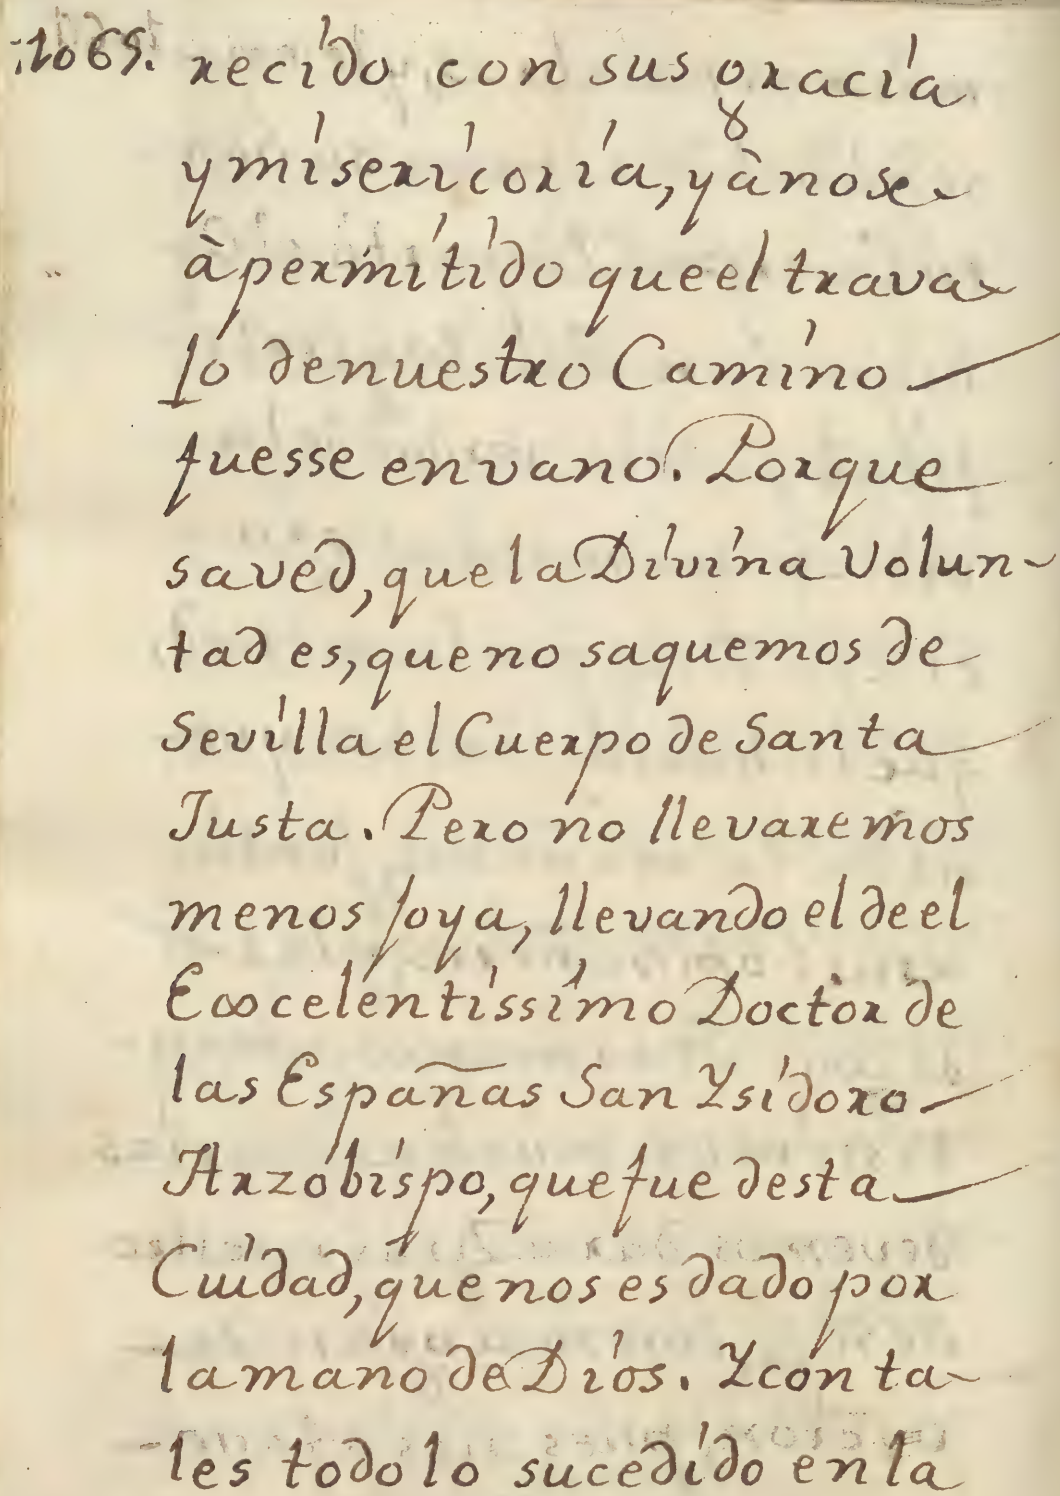 :1065. recído con sus gracía
y mísericoría, y à no se
à permítído que el trava-
Jo de nuestro Camíno
fuesse en vano. Porque
saved, que la Dívína Volun-
tad es, que no saquemos de
Sevílla el Cuerpo de Santa
Justa. Pero no llevaremos
menos Joya, llevando el de el
Excelentíssímo Doctor de
las Españas San Ysídoro
Arzobíspo, que fue desta
Cuídad, que nos es dado por
la mano de Díos. Y con ta-
les todo lo sucedído en la